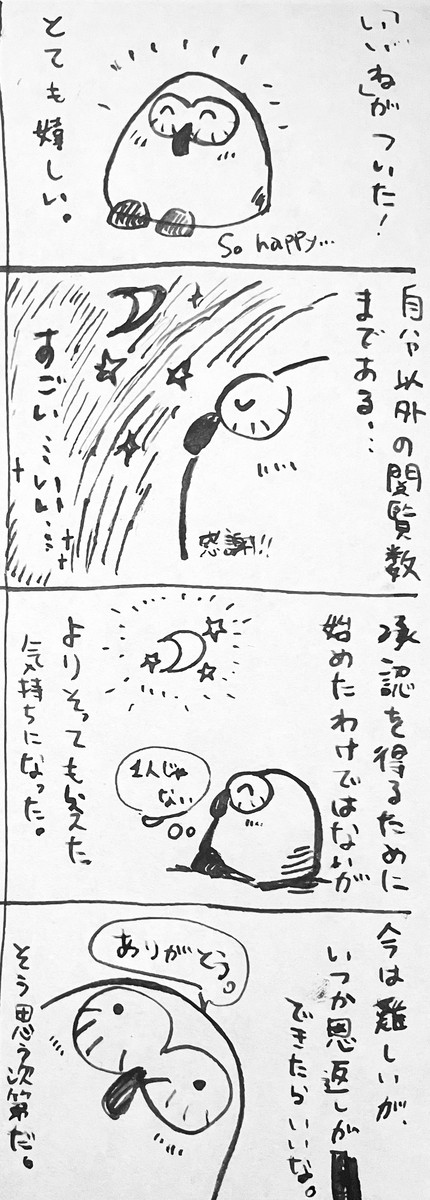 「いいね」がついた!
とても嬉しい。
So happy...
自分以外の閲覧数
まである...
すごい……いい……
感謝!!
承認を得るために
始めたわけではないが
1人じゃ
ない
よりそってもらえた
気持ちになった。
今は難しいが、
いつか恩返しが
できたらいいな。
ありがとう。
そう思う次第だ。